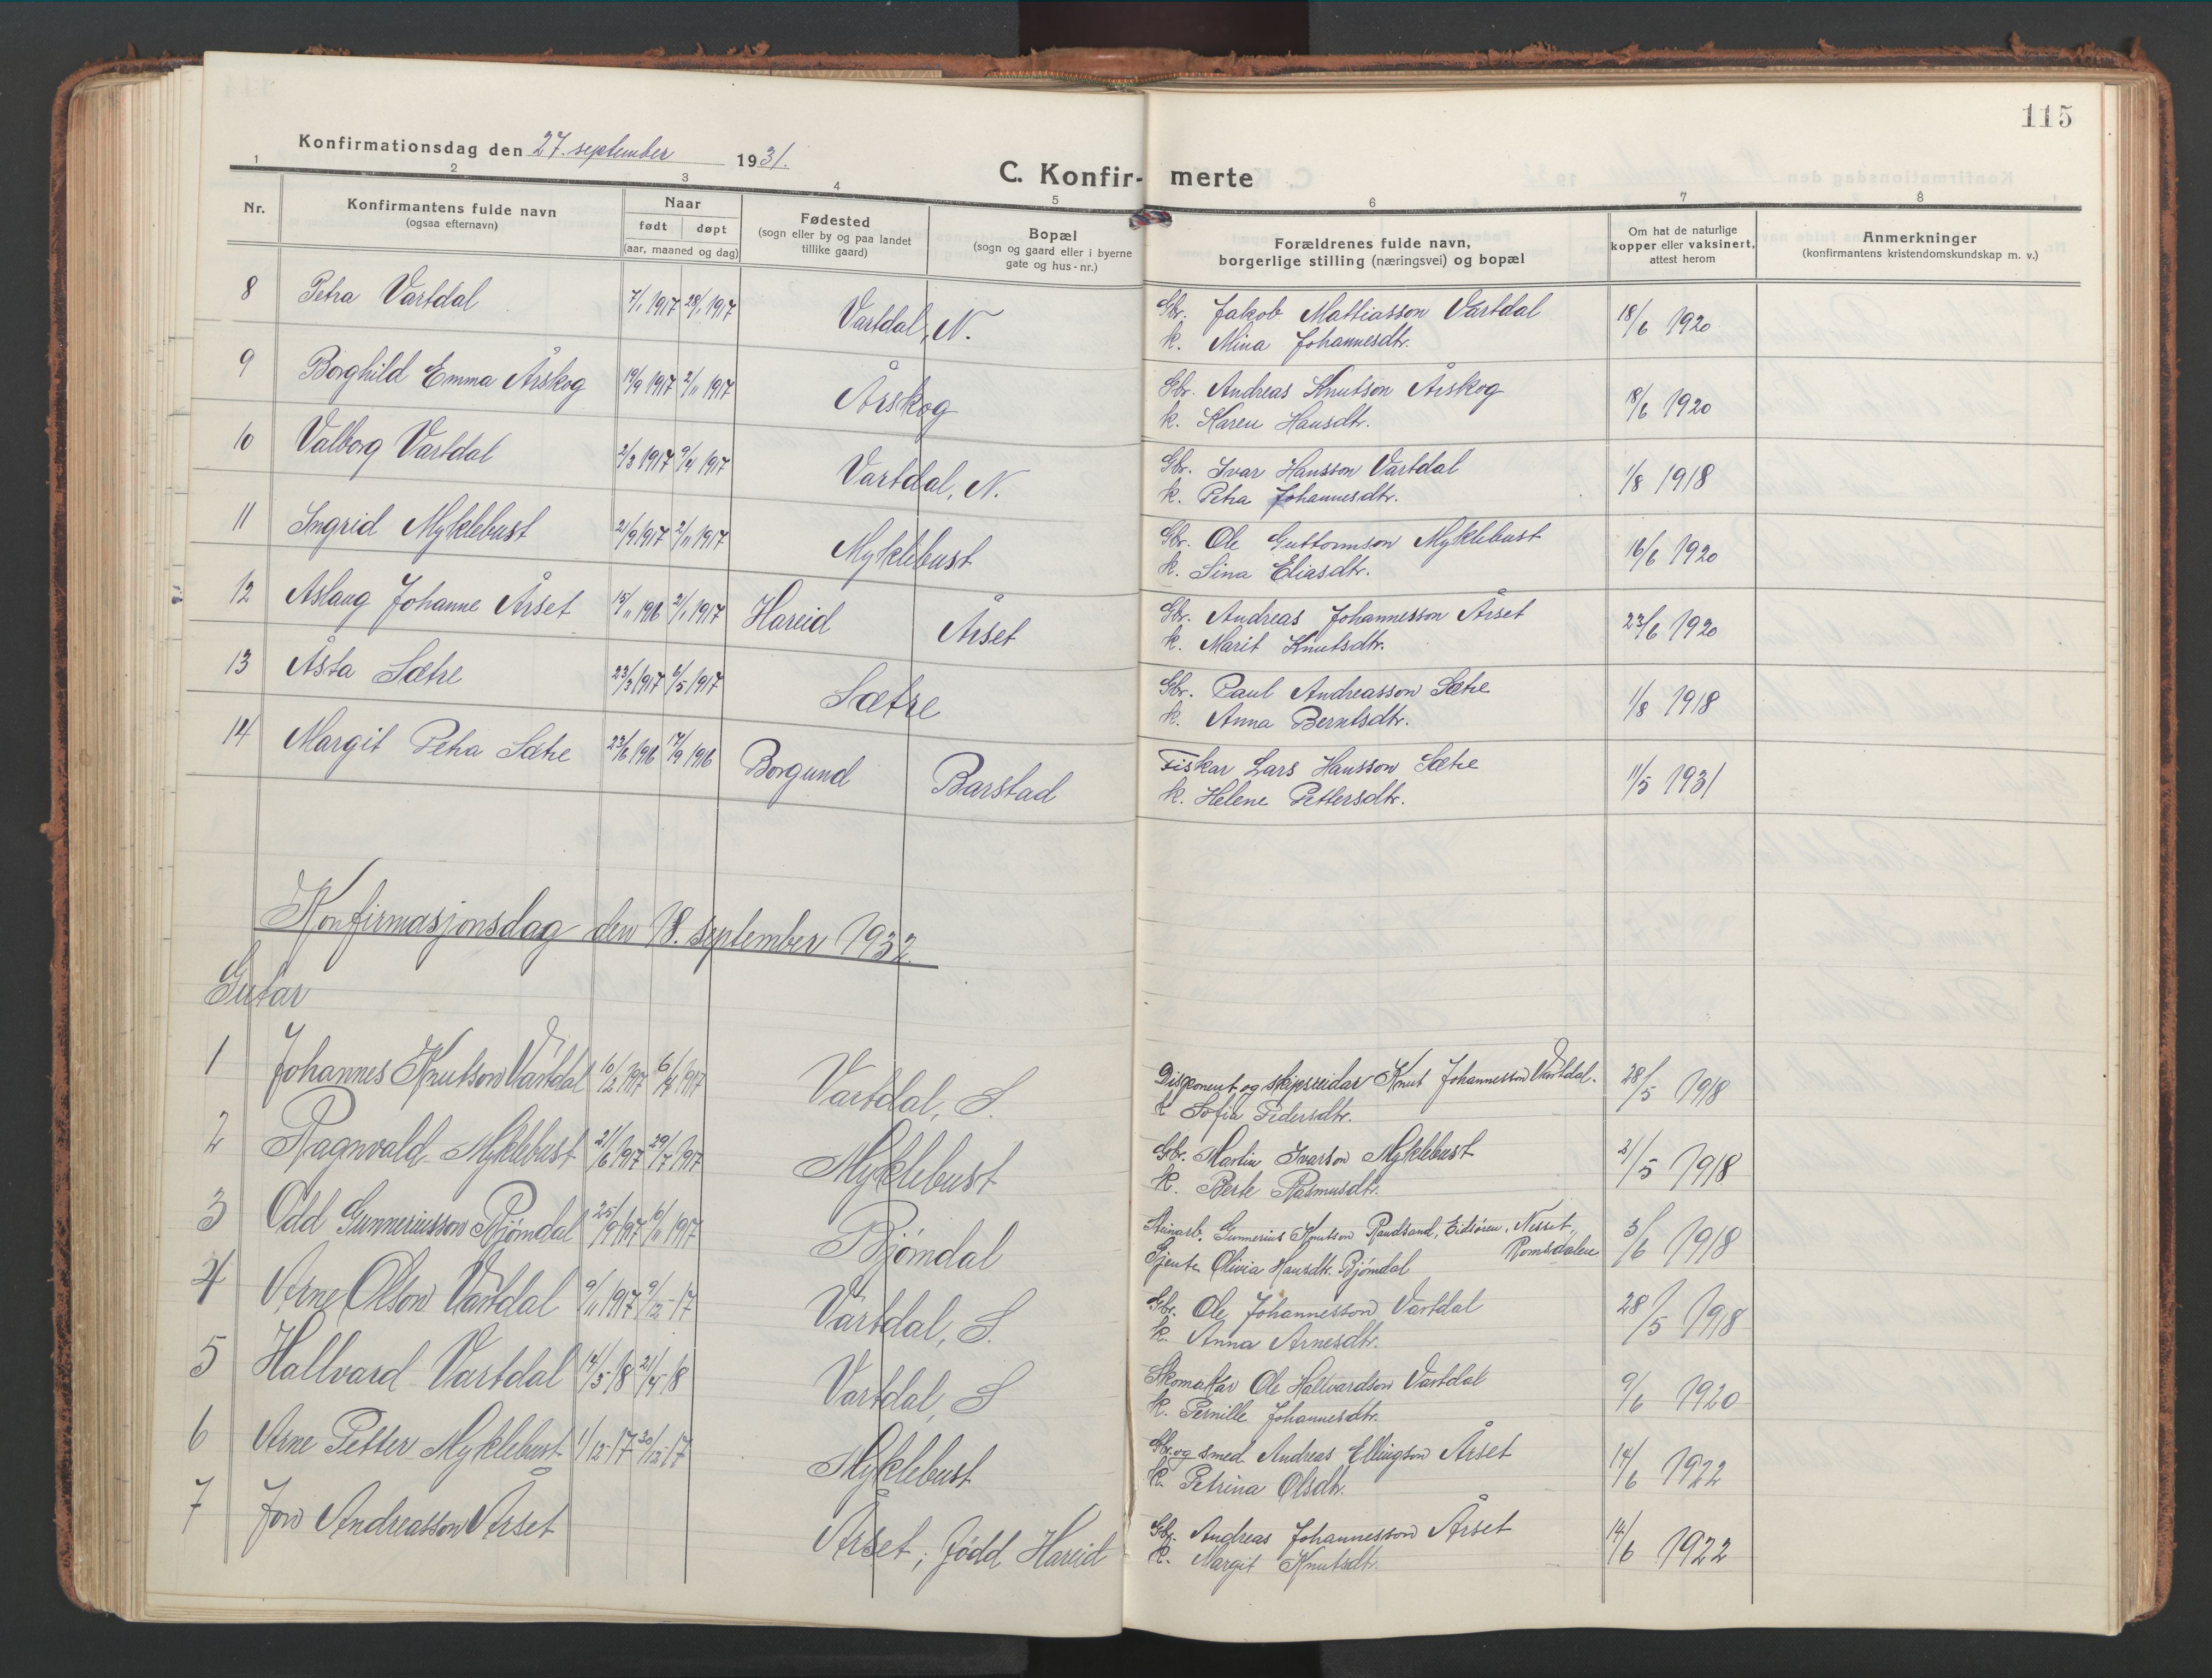 115
Konfirmationsdag den 27. september 1931.
C. Konfirmerte
1 2 3 4 5 6 7 8
Nr.
Konfirmantens fulde navn
(ogsaa efternavn)
Naar
født døpt
(aar, maaned og dag)
Fødested
(sogn eller by og paa landet
tillike gaard)
Bopæl
(sogn og gaard eller i byerne
gate og hus-nr.)
Forældrenes fulde navn,
borgerlige stilling (næringsvei) og bopæl
Om hat de naturlige
kopper eller vaksinert,
attest herom
Anmerkninger
(konfirmantens kristendomskundskap m. v.)
8 Petra Vartdal 7/1 1917 28/1 1917 Vartdal, N. Gbr. Jakob Mattiasson Vartdal 18/6 1920
k. Mina Johannesdtr.
9 Borghild Emma Årskog 19/9 1917 2/11 1917 Årskog Gbr. Andreas Knutson Årskog 18/6 1920
k. Karen Hansdtr.
10 Valborg Vartdal 2/3 1917 9/4 1917 Vartdal, N. Gbr. Ivar Hansson Vartdal 1/8 1918
k. Petra Johannesdtr.
11 Ingrid Myklebust 21/9 1917 2/11 1917 Myklebust Gbr. Ole Guttormson Myklebust 16/6 1920
k. Sina Eliasdtr.
12 Aslaug Johanne Årset 15/11 1916 21/1 1917 Hareid Årset Gbr. Andreas Johannesson Årset 23/6 1920
k. Marit Knutsdtr.
13 Åsta Sætre 23/3 1917 6/5 1917 Sætre Gbr. Paul Andreasson Sætre 1/8 1918
k. Anna Berntsdtr.
14 Margit Petra Sætre 23/6 1916 17/9 1916 Borgund Barstad Fiskar Lars Hansson Sætre 11/5 1931
k. Helene Pettersdtr.
Konfirmasjonsdag den 18. september 1932.
Gutar
1 Johannes Knutson Vartdal 10/2 1917 6/4 1917 Vartdal, S. Disponent og skipsreidar Knut Johannesson Vartdal. 28/5 1918
k Sofia Pedersdtr.
2 Ragnvald Myklebust 21/6 1917 29/7 1917 Myklebust Gbr. Martin Ivarson Myklebust 21/5 1918
k. Berte Rasmusdtr.
3 Odd Gunneriusson Bjømdal 25/9 1917 10/11 1917 Bjømdal Steinarb. Gunnerius Knutson Randsand, Eidsøren, Nesset, 3/6 1918
Romsdalen
Gjente Olivia Hansdtr. Bjømdal
4 Arne Olson Vartdal 9/11 1917 9/12-17 Vartdal, S. Gbr. Ole Johannesson Vartdal 28/5 1918
k. Anna Arnesdtr.
5 Hallvard Vartdal 14/3-18 21/4-18 Vartdal, S Skomakar Ole Hallvardson Vartdal 9/6 1920
k. Pernille Johannesdtr.
6 Arne Petter Myklebust 1/12-17 20/12-17 Myklebust Gbr. og smed Andreas Ellingson Årset 14/6 1922
k. Petrina Olsdtr.
7 Jon Andreasson Årset Årset; fødd Hareid Gbr. Andreas Johannesson Årset 14/6 1922
k. Margit Knutsdtr.